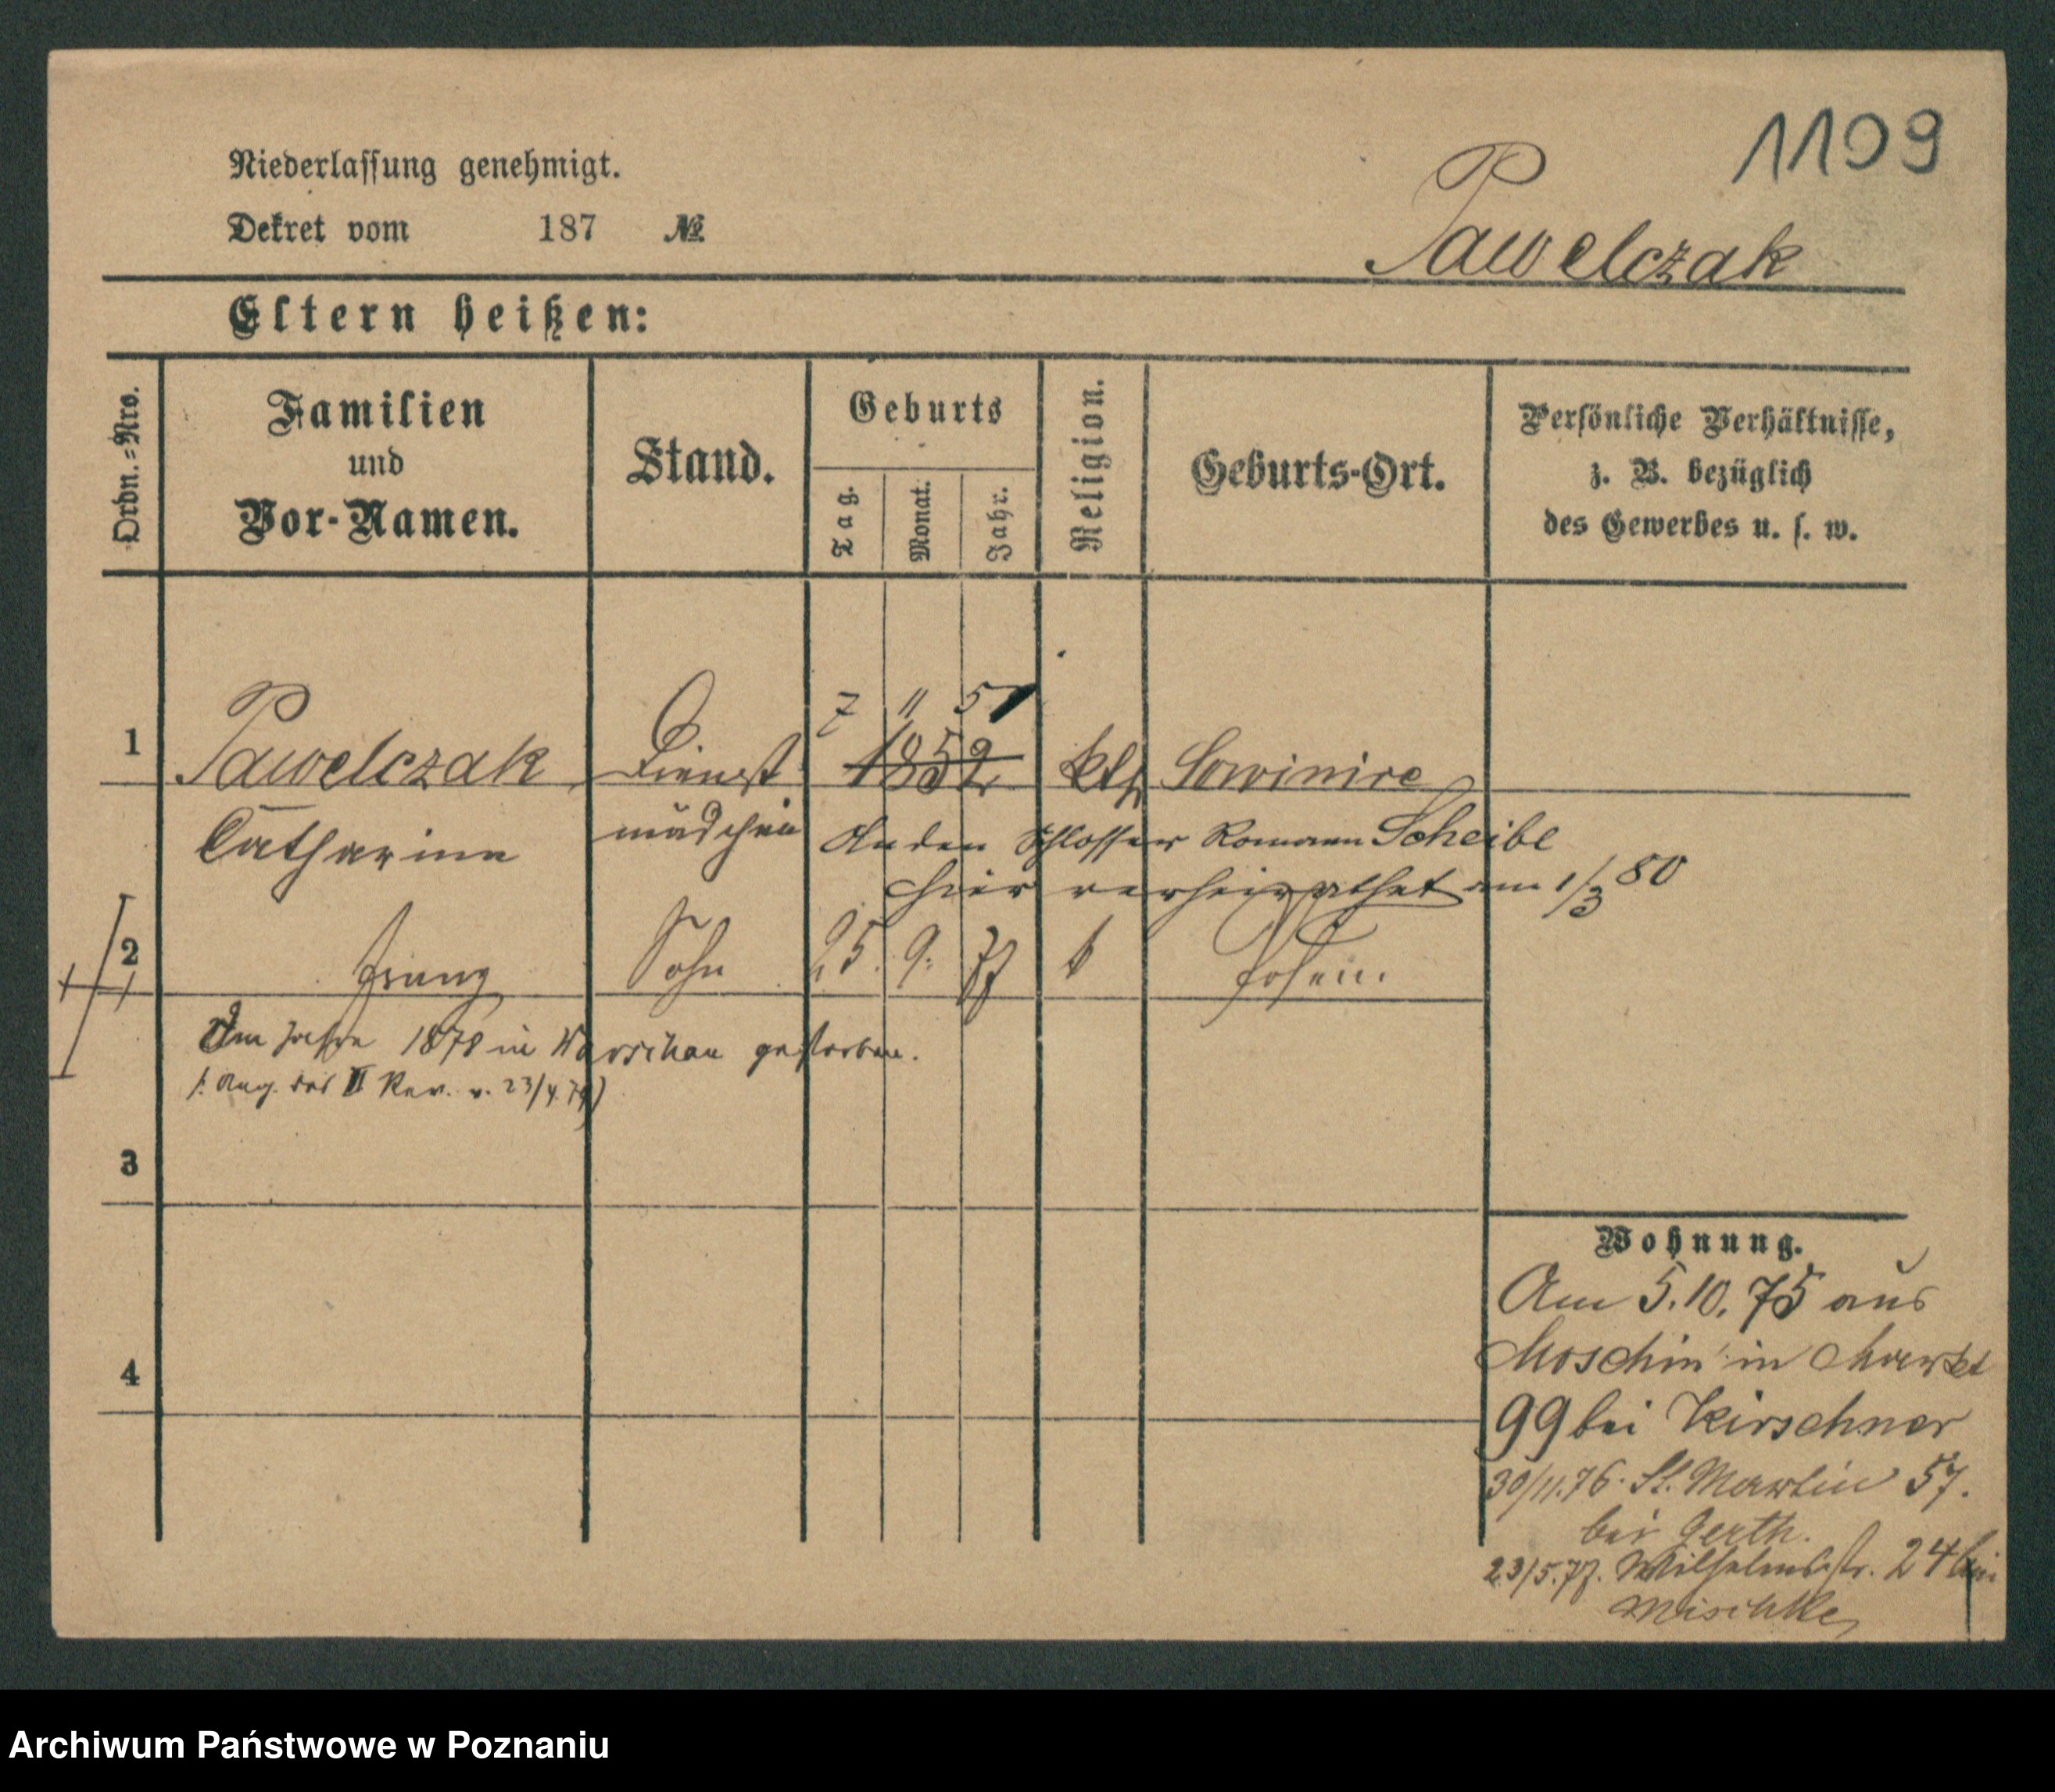 1109
Niederlassung genehmigt.
Pawelczak
Dekret vom 187 №
Eltern heißen:
Ordn.-Nro.
Familien
und
Vor-Namen.
Stand.
Geburts
Tag.
Monat.
Jahr.
Religion.
Geburts-Ort.
Persönliche Verhältnisse,
z. B. bezüglich
des Gewerbes u. s. w.
7 11 51
1 Pawelczak Dienst 1852 kth
Catharina mädchen An den Schlosser Roman Scheibe
hier verheirathet am 1/3 80
2 Franz Sohn 25. 9. 77 k Posen.
Im Jahre 1878 in Warschau gestorben.
(: Ang. des II Rev. v. 23/4.79)
3
4
Wohnung.
Am 5.10.75 aus
Moschin in Markt
99 bei Kirschner
30/11.76. St. Martin 57.
bei Gerth.
23/5.77. Wilhelmsstr. 24 bei
Mischke
Archiwum Państwowe w Poznaniu